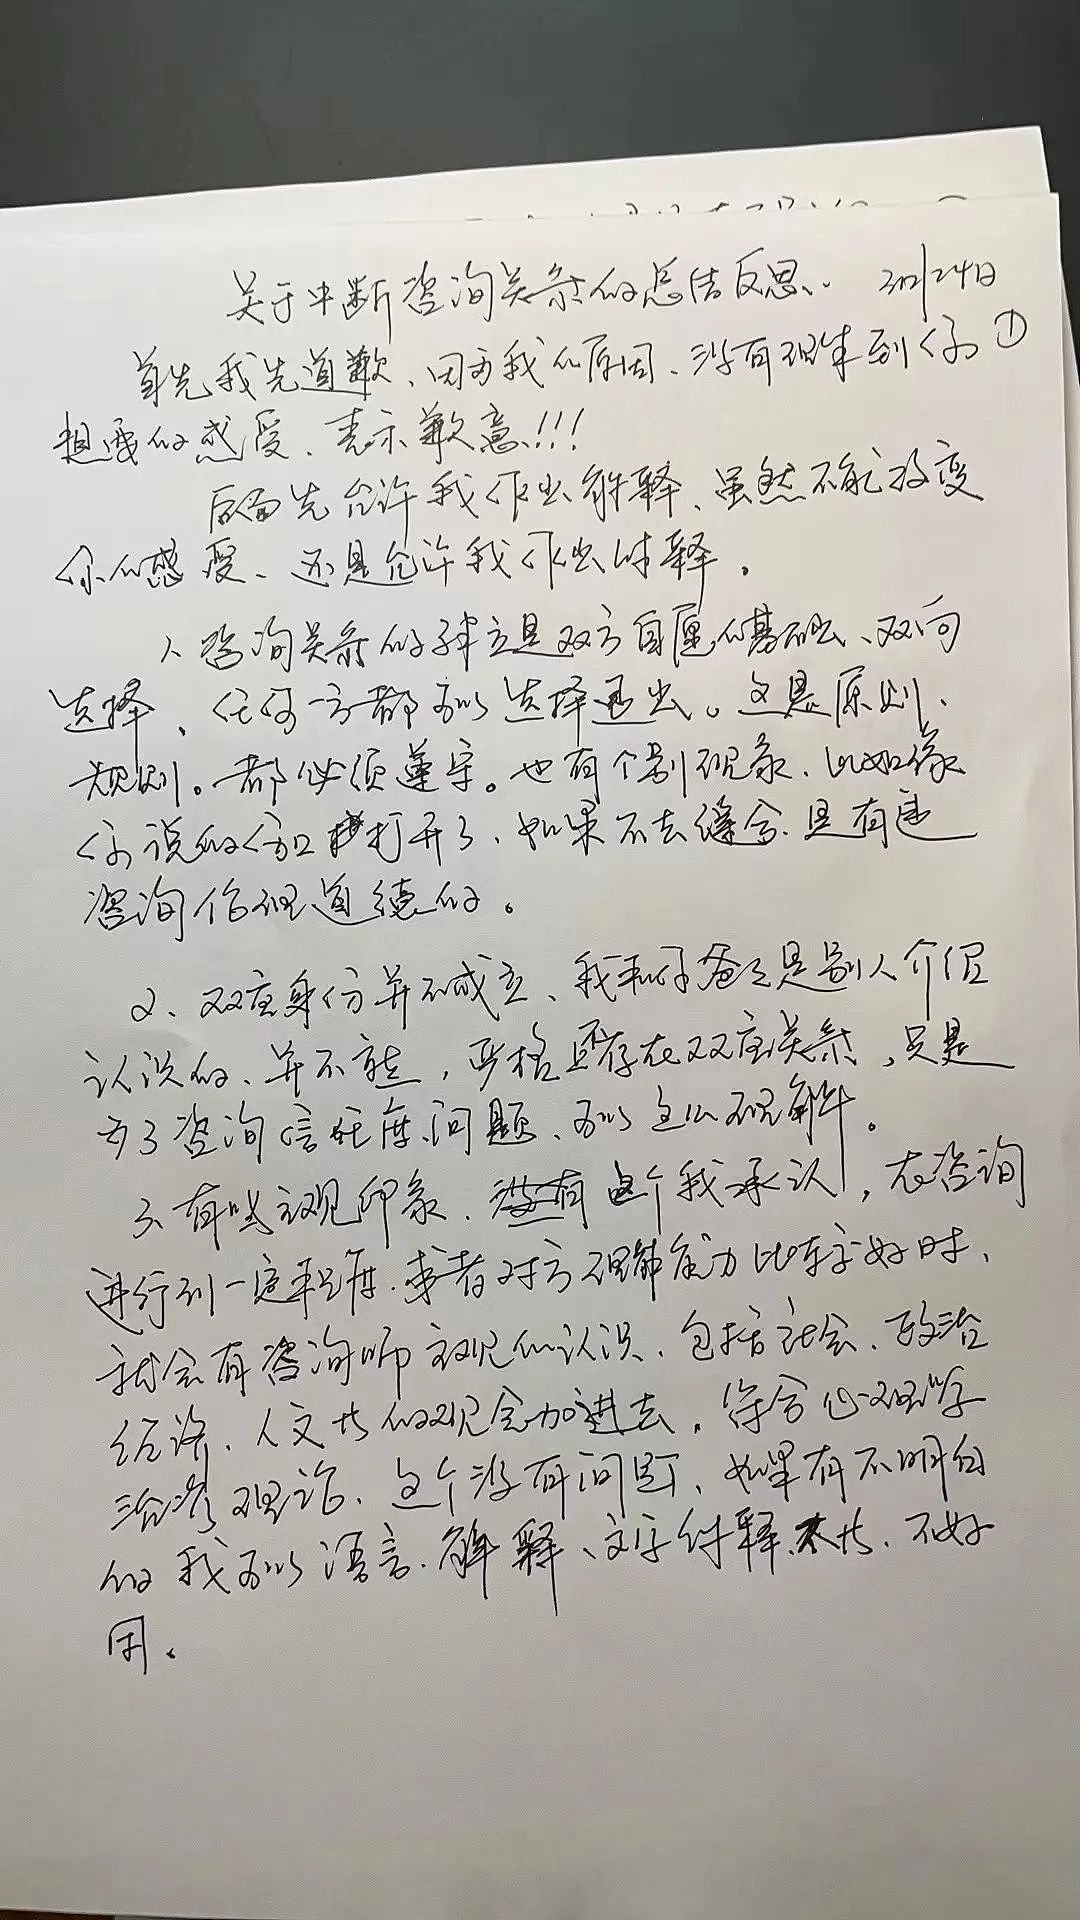 关于中断咨询关系的总结反思. 3月24日
①
首先我先道歉、因为我的原因、没有理解到你
想要的感受、表示歉意!!!
后面先允许我作出解释、虽然不能改变
你的感受、还是允许我作出解释。
1、咨询关系的建立是双方自愿的基础、双向
选择、任何一方都可以选择退出。这是原则、
规则。都必须遵守。也有个别现象、比如像
你说的伤口打开了、如果不去缝合、是有违
咨询伦理道德的。
2、双重身份并不成立、我和你爸爸是别人介绍
认识的、并不熟，严格不存在双重关系，只是
为了咨询信任度问题、可以这么理解。
3、有些主观印象、这个我承认，在咨询
进行到一定程度、或者对方理解能力比较好时、
就会有咨询师主观的认识、包括社会、政治
经济、人文等的观念加进去，符合心理学
治疗理论、这个没有问题、如果有不明白
的我可以语言解释、文字解释太长、不好
用。